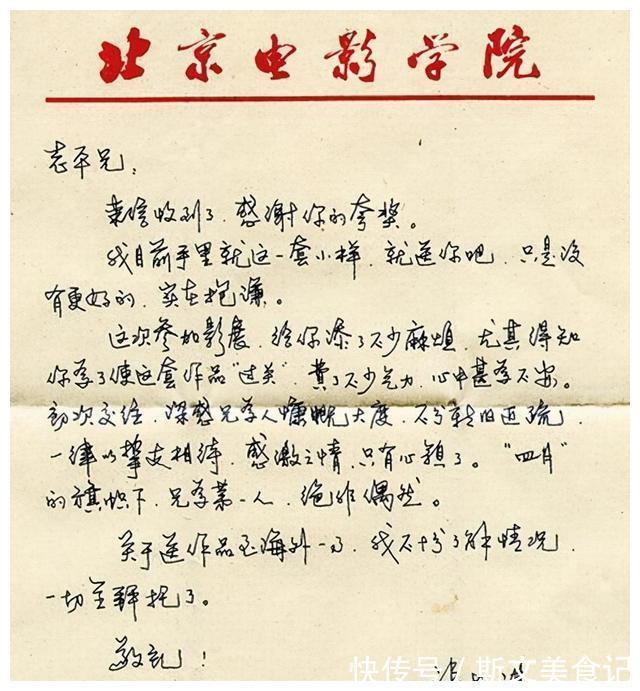 北京电影学院
志平兄：
来信收到了，感谢你的夸奖。
我目前手里就这一套小样，就送你吧，只是没
有更好的，实在抱谦。
这次参加影展，给你添了不少麻烦，尤其得知
你为了使这套作品“过关”，费了不少气力，心中甚为不安。
初次交往，深感兄为人慷慨大度，不分新旧近疏，
一律以挚友相待，感激之情，只有心领了。“四月”
的旗帜下，兄为第一人，绝非偶然。
关于送作品至海外一事，我不十分了解情况，
一切全拜托了。
敬礼！
快传号／斯文美食记